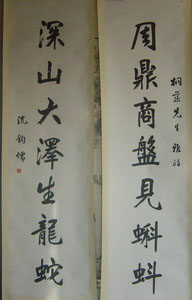 周鼎商盤見蝌蚪
桐蓀先生
深山大澤生龍蛇
沈鈞儒